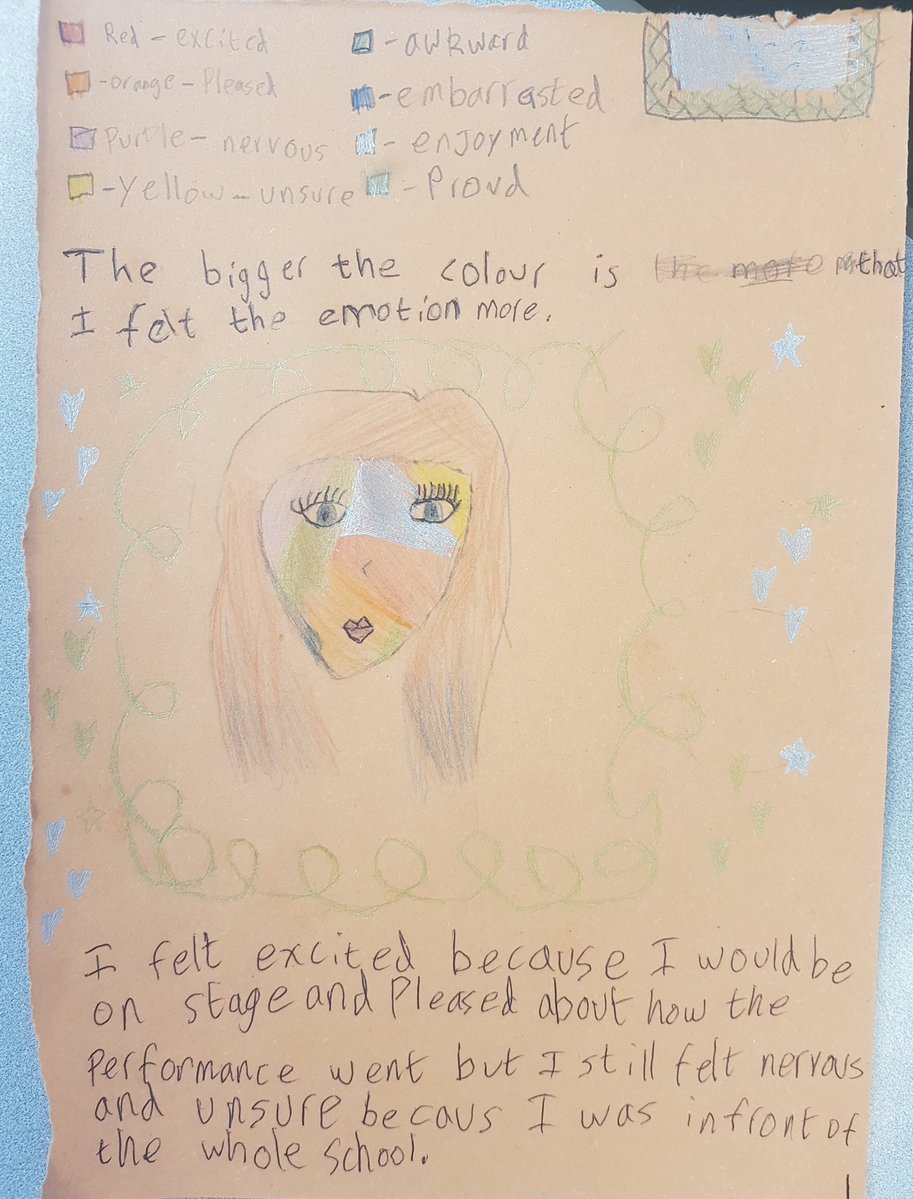 Red - excited
- orange - Pleased
Purple - nervous
- Yellow - unsure
- awkward
- embarrasted
- enjoyment
- Proud
The bigger the colour is the more that
I felt the emotion more.
I felt excited because I would be
on stage and Pleased about how the
Performance went but I still felt nervous
and unsure becaus I was infront of
the whole school.